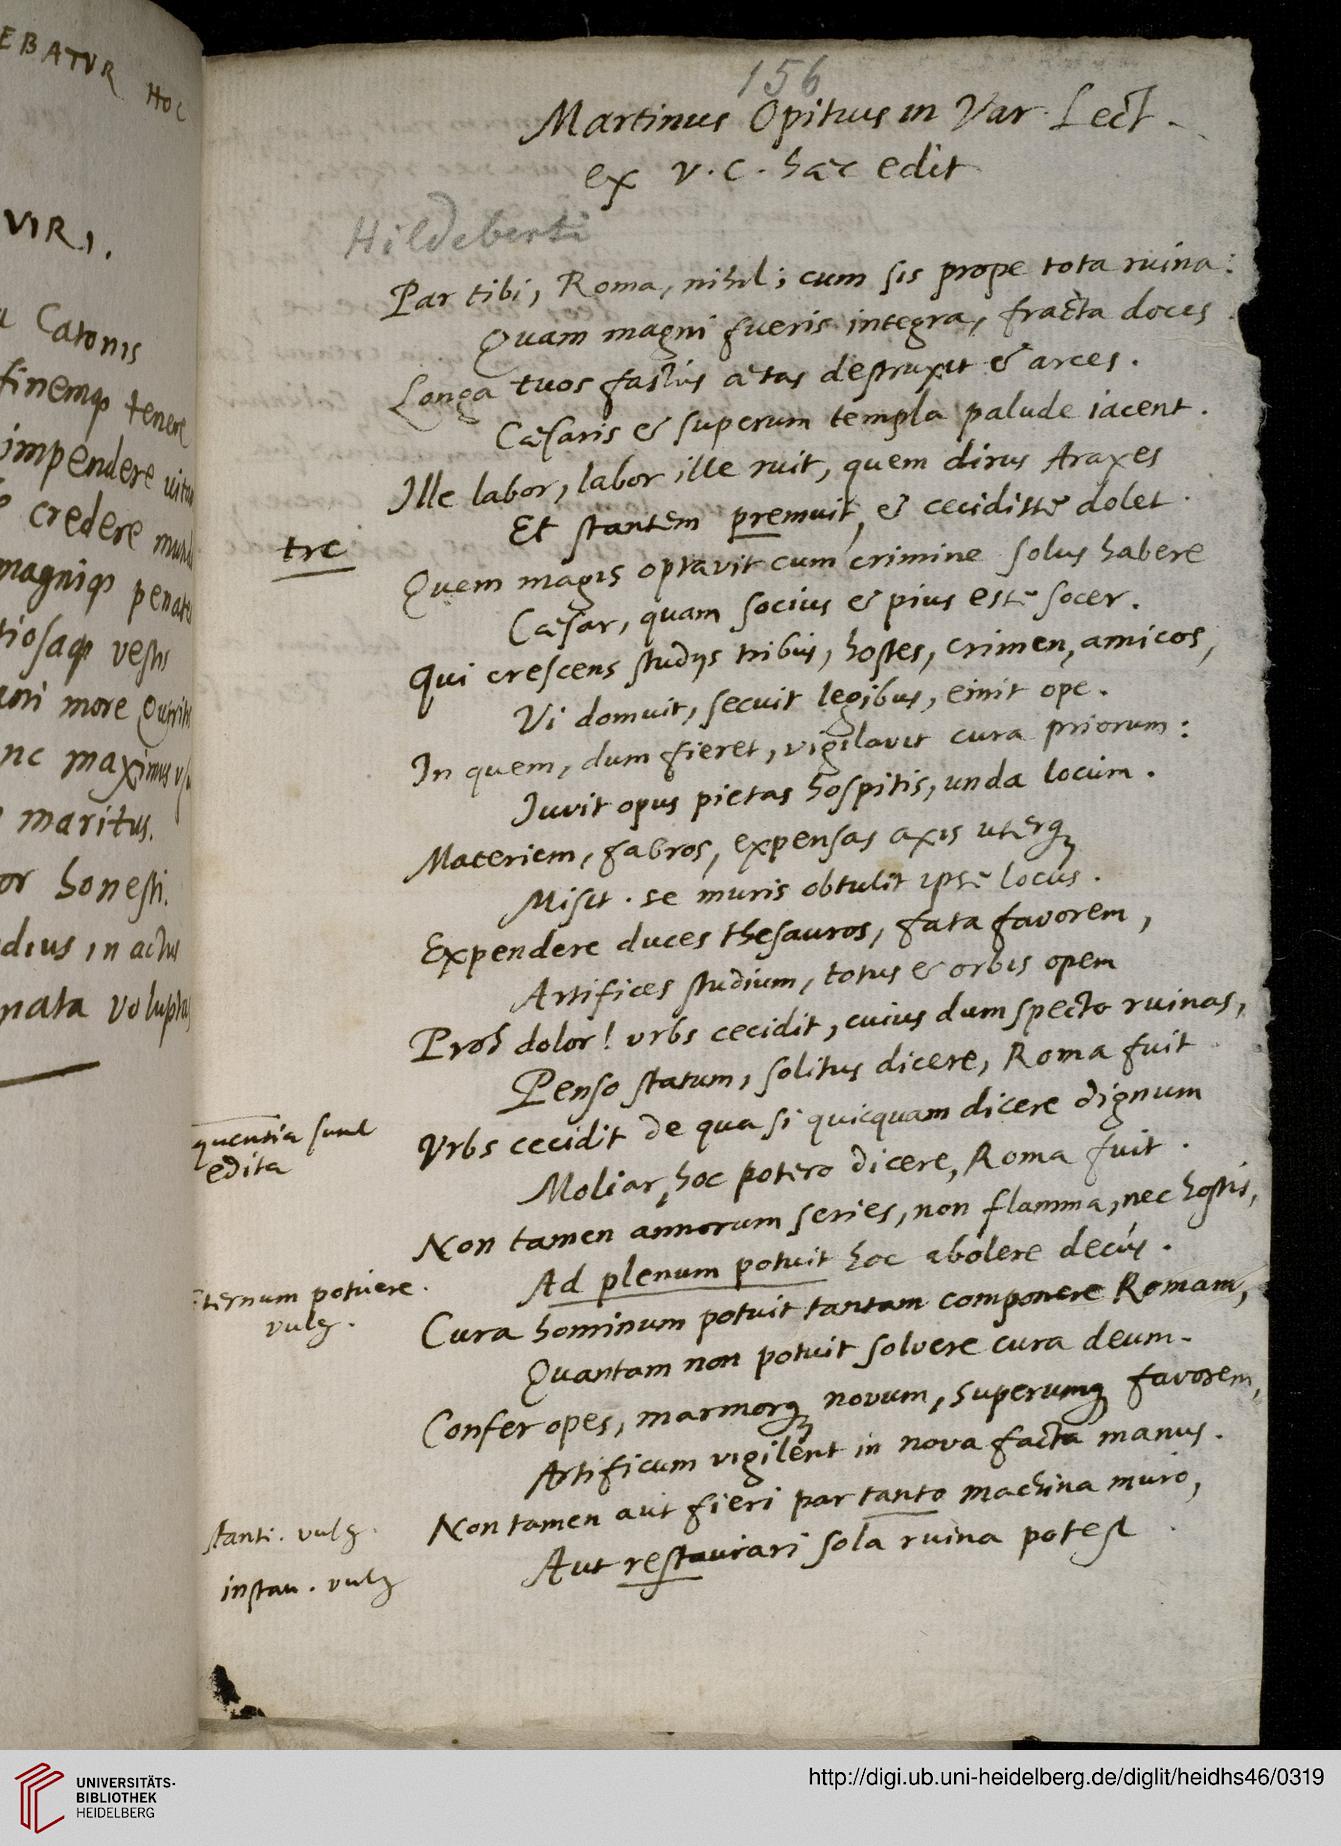 EBATVR HOC
VIRI.
Catonis
finemq tenere
impendere
credere
magniq penates
vestis
more Quiritis
nc maximus
maritus.
or honesti.
dius in actus
nata voluptas
156
Martinus Opitius in Var. Lect.
ex v. c. hæc edit
Hildeberti
Par tibi, Roma, nihil; cum sis prope tota ruina:
Quam magni fueris integra, fracta doces.
Longa tuos fastus ætas destruxit & arces.
Cæsaris & superum templa palude iacent.
Ille labor, labor ille ruit, quem dirus Araxes
Et stantem premuit, & cecidisse dolet.
tre
Quem magis optavit cum crimine solus habere
Cæsar, quam socius & pius esse socer.
Qui crescens studijs tribus, hostes, crimen, amicos,
Vi domuit, secuit legibus, emit ope.
In quem, dum fieret, vigilavit cura priorum:
Iuvit opus pietas hospitis, unda locum.
Materiem, fabros, expensas axis uterq
Misit. se muris obtulit ipse locus.
Expendere duces thesauros, fata favorem,
Artifices studium, totus & orbis opem
Proh dolor! urbs cecidit, cuius dum specto ruinas,
Penso statum, solitus dicere, Roma fuit
quentia sunt
edita
Vrbs cecidit de qua si quicquam dicere dignum
Moliar, hoc potero dicere, Roma fuit.
Non tamen annorum series, non flamma, nec hostis,
Ad plenum potuit hoc abolere decus.
ternum potuere.
vulg.
Cura hominum potuit tantam componere Romam,
Quantam non potuit solvere cura deum.
Confer opes, marmorq novum, superumq favorem,
Artificum vigilent in nova facta manus.
Non tamen aut fieri par tanto machina muro,
stanti. vulg.
Aut restaurari sola ruina potest
instau. vulg
UNIVERSITÄTS-
BIBLIOTHEK
HEIDELBERG
http://digi.ub.uni-heidelberg.de/diglit/heidhs46/0319